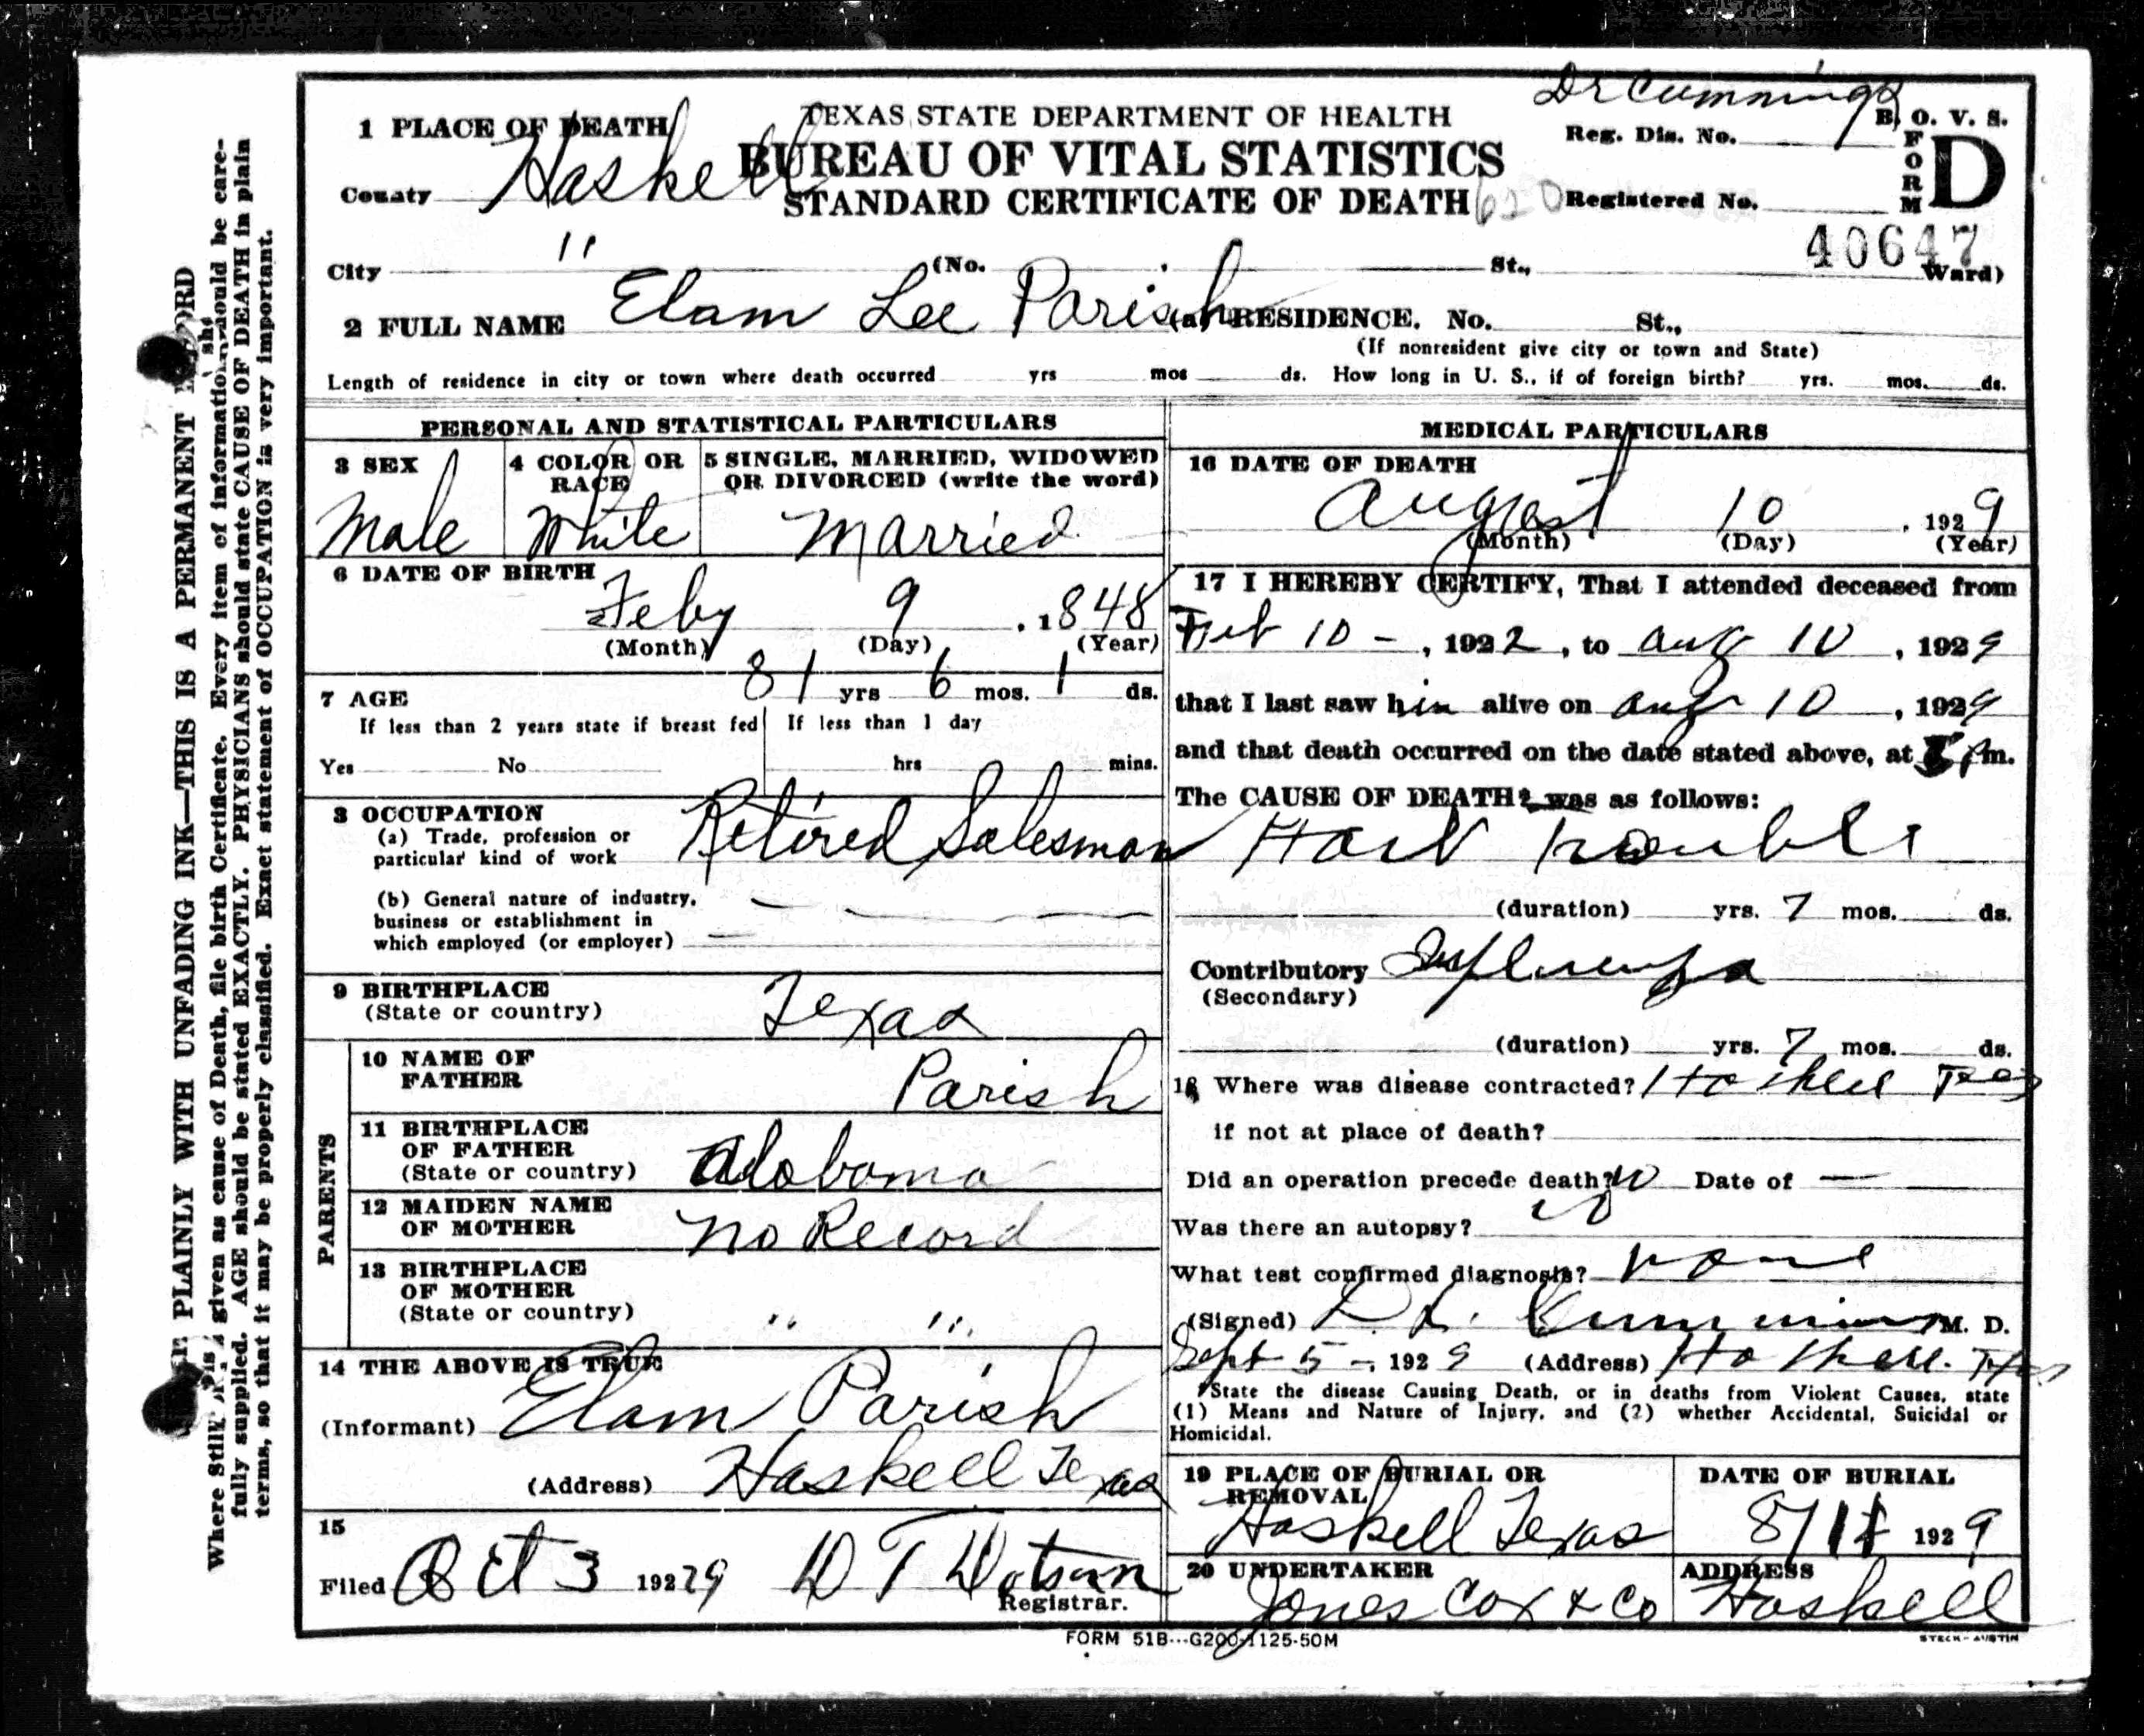 Dr Cummings
1 PLACE OF DEATH
TEXAS STATE DEPARTMENT OF HEALTH
B. O. V. S.
BUREAU OF VITAL STATISTICS
Reg. Dis. No.
FORM D
County Haskell
STANDARD CERTIFICATE OF DEATH
620 Registered No.
40647
City " (No. St., Ward)
2 FULL NAME Elam Lee Parish (a) RESIDENCE. No. St.,
(If nonresident give city or town and State)
Length of residence in city or town where death occurred yrs mos ds. How long in U. S., if of foreign birth? yrs. mos. ds.
PERSONAL AND STATISTICAL PARTICULARS
3 SEX
Male
4 COLOR OR RACE
White
5 SINGLE, MARRIED, WIDOWED
OR DIVORCED (write the word)
Married
6 DATE OF BIRTH
Feby 9, 1848
(Month) (Day) (Year)
7 AGE 81 yrs 6 mos. 1 ds.
If less than 2 years state if breast fed If less than 1 day
Yes No hrs mins.
8 OCCUPATION
(a) Trade, profession or
particular kind of work Retired Salesman
(b) General nature of industry,
business or establishment in
which employed (or employer)
9 BIRTHPLACE
(State or country) Texas
PARENTS
10 NAME OF
FATHER Parish
11 BIRTHPLACE
OF FATHER
(State or country) Alabama
12 MAIDEN NAME
OF MOTHER No Record
13 BIRTHPLACE
OF MOTHER
(State or country) " "
14 THE ABOVE IS TRUE
(Informant) Elam Parish
(Address) Haskell Texas
15
Filed Oct 3 19229 Registrar.
MEDICAL PARTICULARS
16 DATE OF DEATH
August 10, 1929
(Month) (Day) (Year)
17 I HEREBY CERTIFY, That I attended deceased from
Feb 10 -, 1922, to Aug 10, 1929
that I last saw him alive on Aug 10, 1929
and that death occurred on the date stated above, at m.
The CAUSE OF DEATH* was as follows:
Hart trouble
(duration) yrs. 7 mos. ds.
Contributory Influenza
(Secondary)
(duration) yrs. 7 mos. ds.
18 Where was disease contracted? Haskell Tex
if not at place of death?
Did an operation precede death? no Date of —
Was there an autopsy? no
What test confirmed diagnosis? none
(Signed) Cummins M. D.
Sept 5 -, 1929 (Address) Haskell. Tex
*State the disease Causing Death, or in deaths from Violent Causes, state
(1) Means and Nature of Injury, and (2) whether Accidental, Suicidal or
Homicidal.
19 PLACE OF BURIAL OR
REMOVAL
Haskell Texas
DATE OF BURIAL
8/11 1929
20 UNDERTAKER
Jones Cox & Co
ADDRESS
Haskell
FORM 51B---G200-1125-50M
STECK-AUSTIN
PLAINLY WITH UNFADING INK—THIS IS A PERMANENT
given as cause of Death, file birth Certificate. Every item of information should be care-
fully supplied. AGE should be stated EXACTLY. PHYSICIANS should state CAUSE OF DEATH in plain
terms, so that it may be properly classified. Exact statement of OCCUPATION is very important.